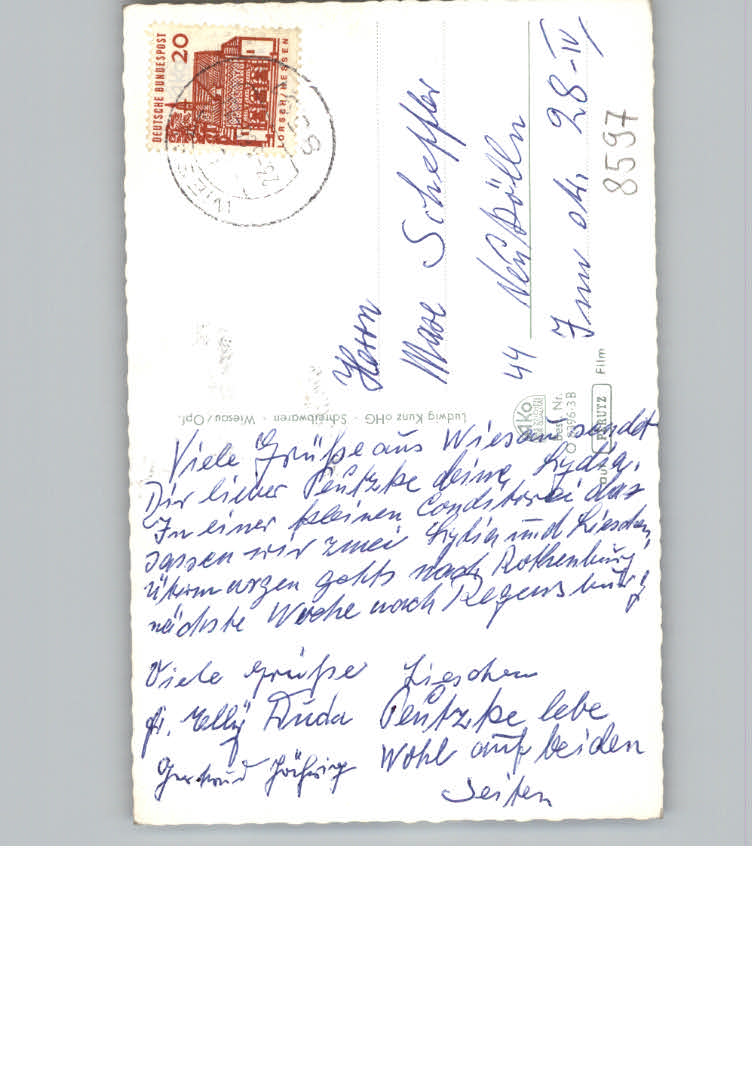 DEUTSCHE BUNDESPOST
20
LORSCH/HESSEN
Herrn
Max Scheffler
44 Neukölln
Innstr. 28-IV
8597
Ludwig Kunz oHG · Schreibwaren · Wiesau/Opf.
Best. Nr.
PERUTZ Film
Viele Grüße aus Wiesau sendet
Dir lieber Peutzke deine Lydia.
In einer kleinen Conditorei das
sassen wir zwei Lydia und Lieschen,
übermorgen gehts nach Rothenburg
nächste Woche nach Regensburg
Viele Grüße Lieschen
fr. Elly Duda Peutzke lebe
Gertrud wohl auf beiden
Seiten